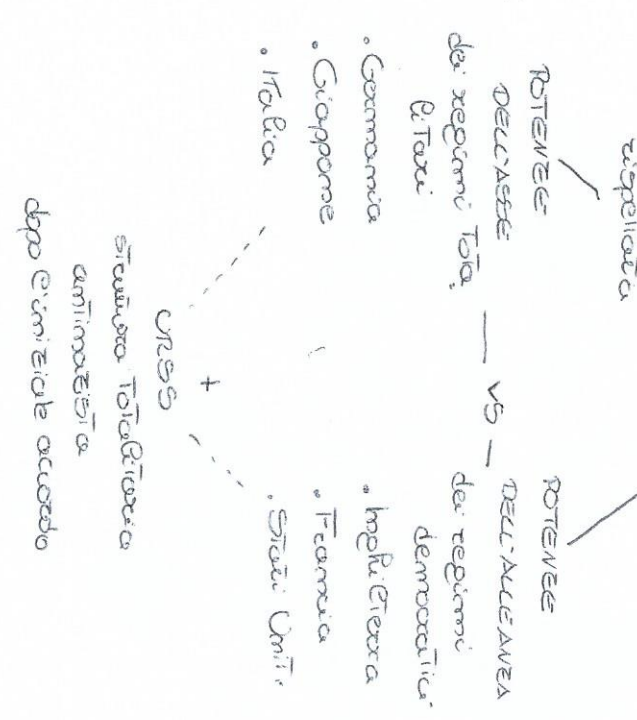 rispettata
POTENZE
DELL'ASSE
dei regimi Tota,
litari
• Germania
• Giappone
• Italia
VS
POTENZE
DELL'ALLEANZA
dei regimi
democratici
• Inghilterra
• Francia
• Stati Uniti
+
URSS
struttura Totalitaria
antinazista
dopo l'iniziale accordo